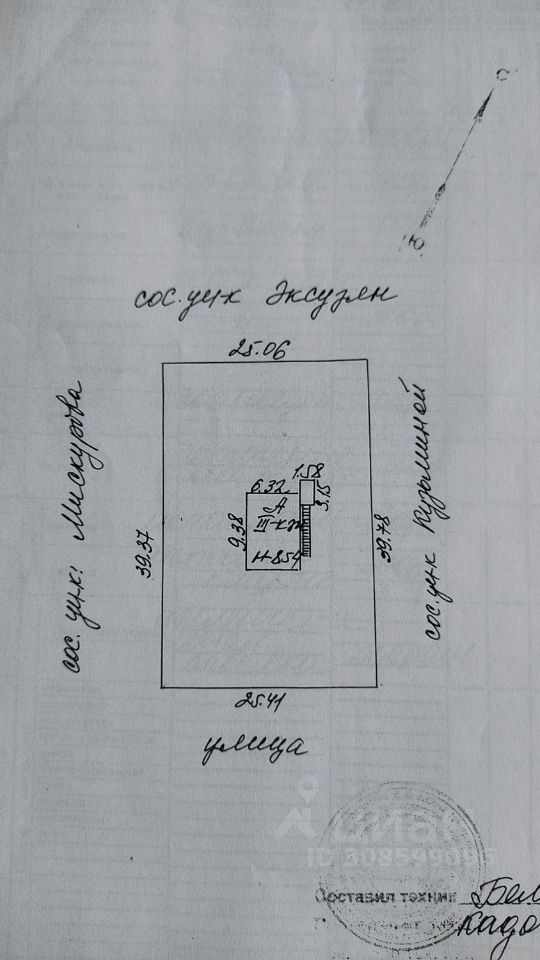 С
Ю
сос. уч-к Эксузян
25.06
сос. уч-к: Мискурова
39.37
1.58
6.32
3.15
А
III-кж
9.38
H-8.54
39.78
сос. уч-к Кузьминой
25.41
улица
циан
ID 308599095
Составил техник Бел